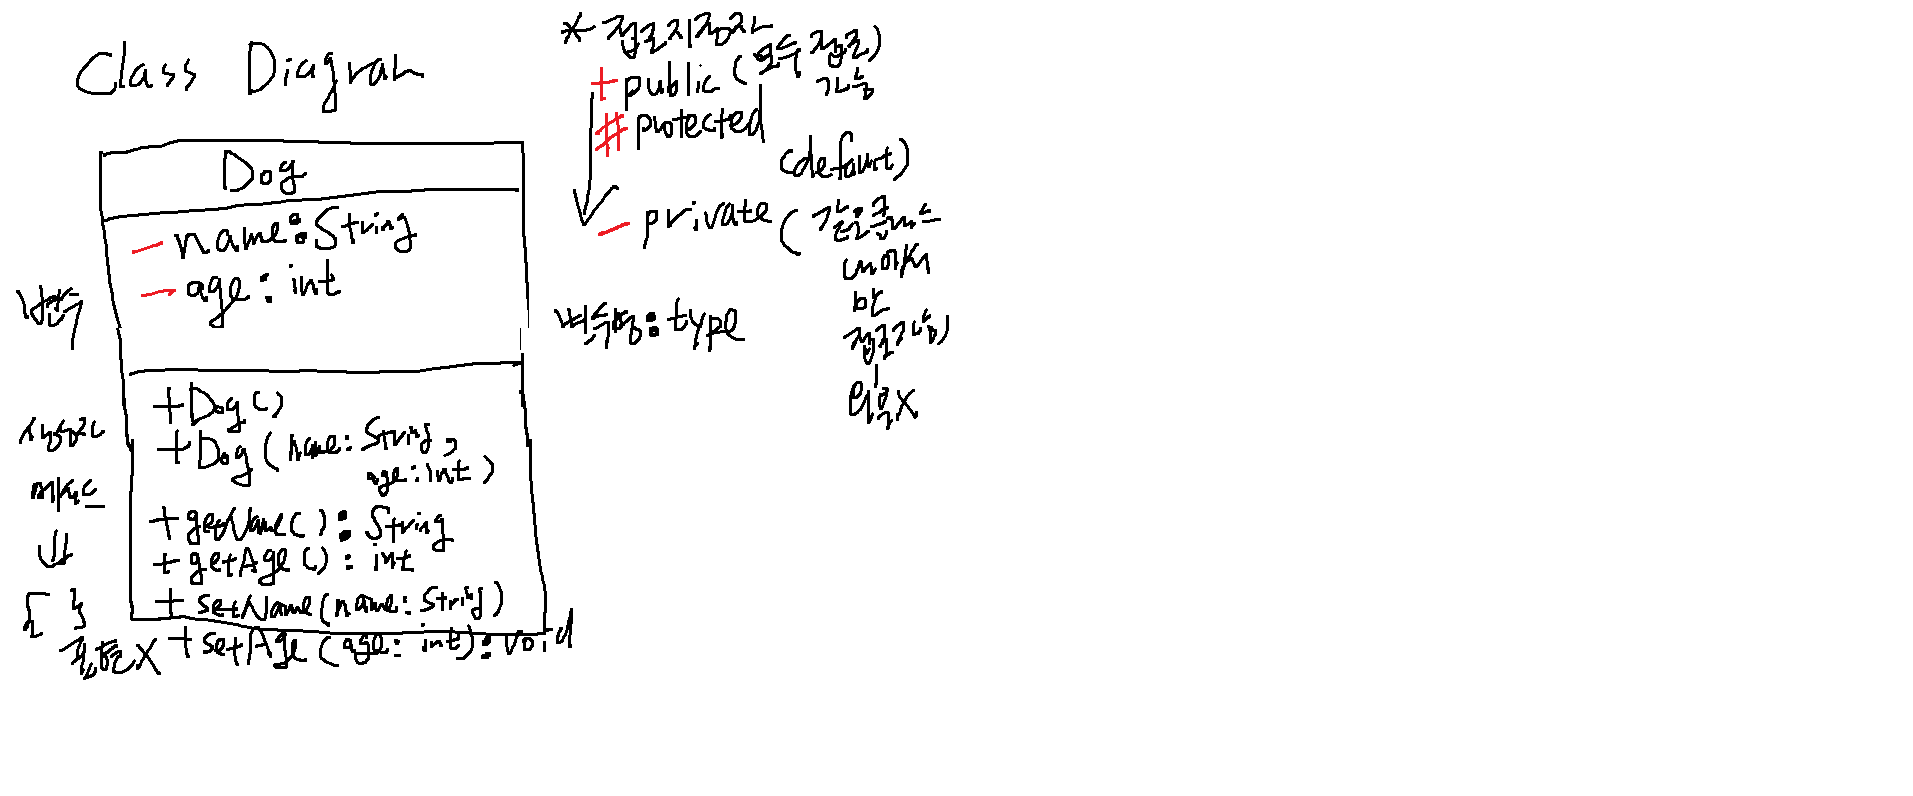 Class Diagram
Dog
- name : String
- age : int
변수
+ Dog()
+ Dog(name : String,
age : int)
생성자
메서드
+ getName() : String
+ getAge() : int
+ setName(name : String)
+ setAge(age : int) : void
{ }
포함X
* 접근지정자
+ public (모두 접근)
가능
# protected
(default)
- private (같은클래스
내에서
만
접근가능)
외부X
변수명 : type